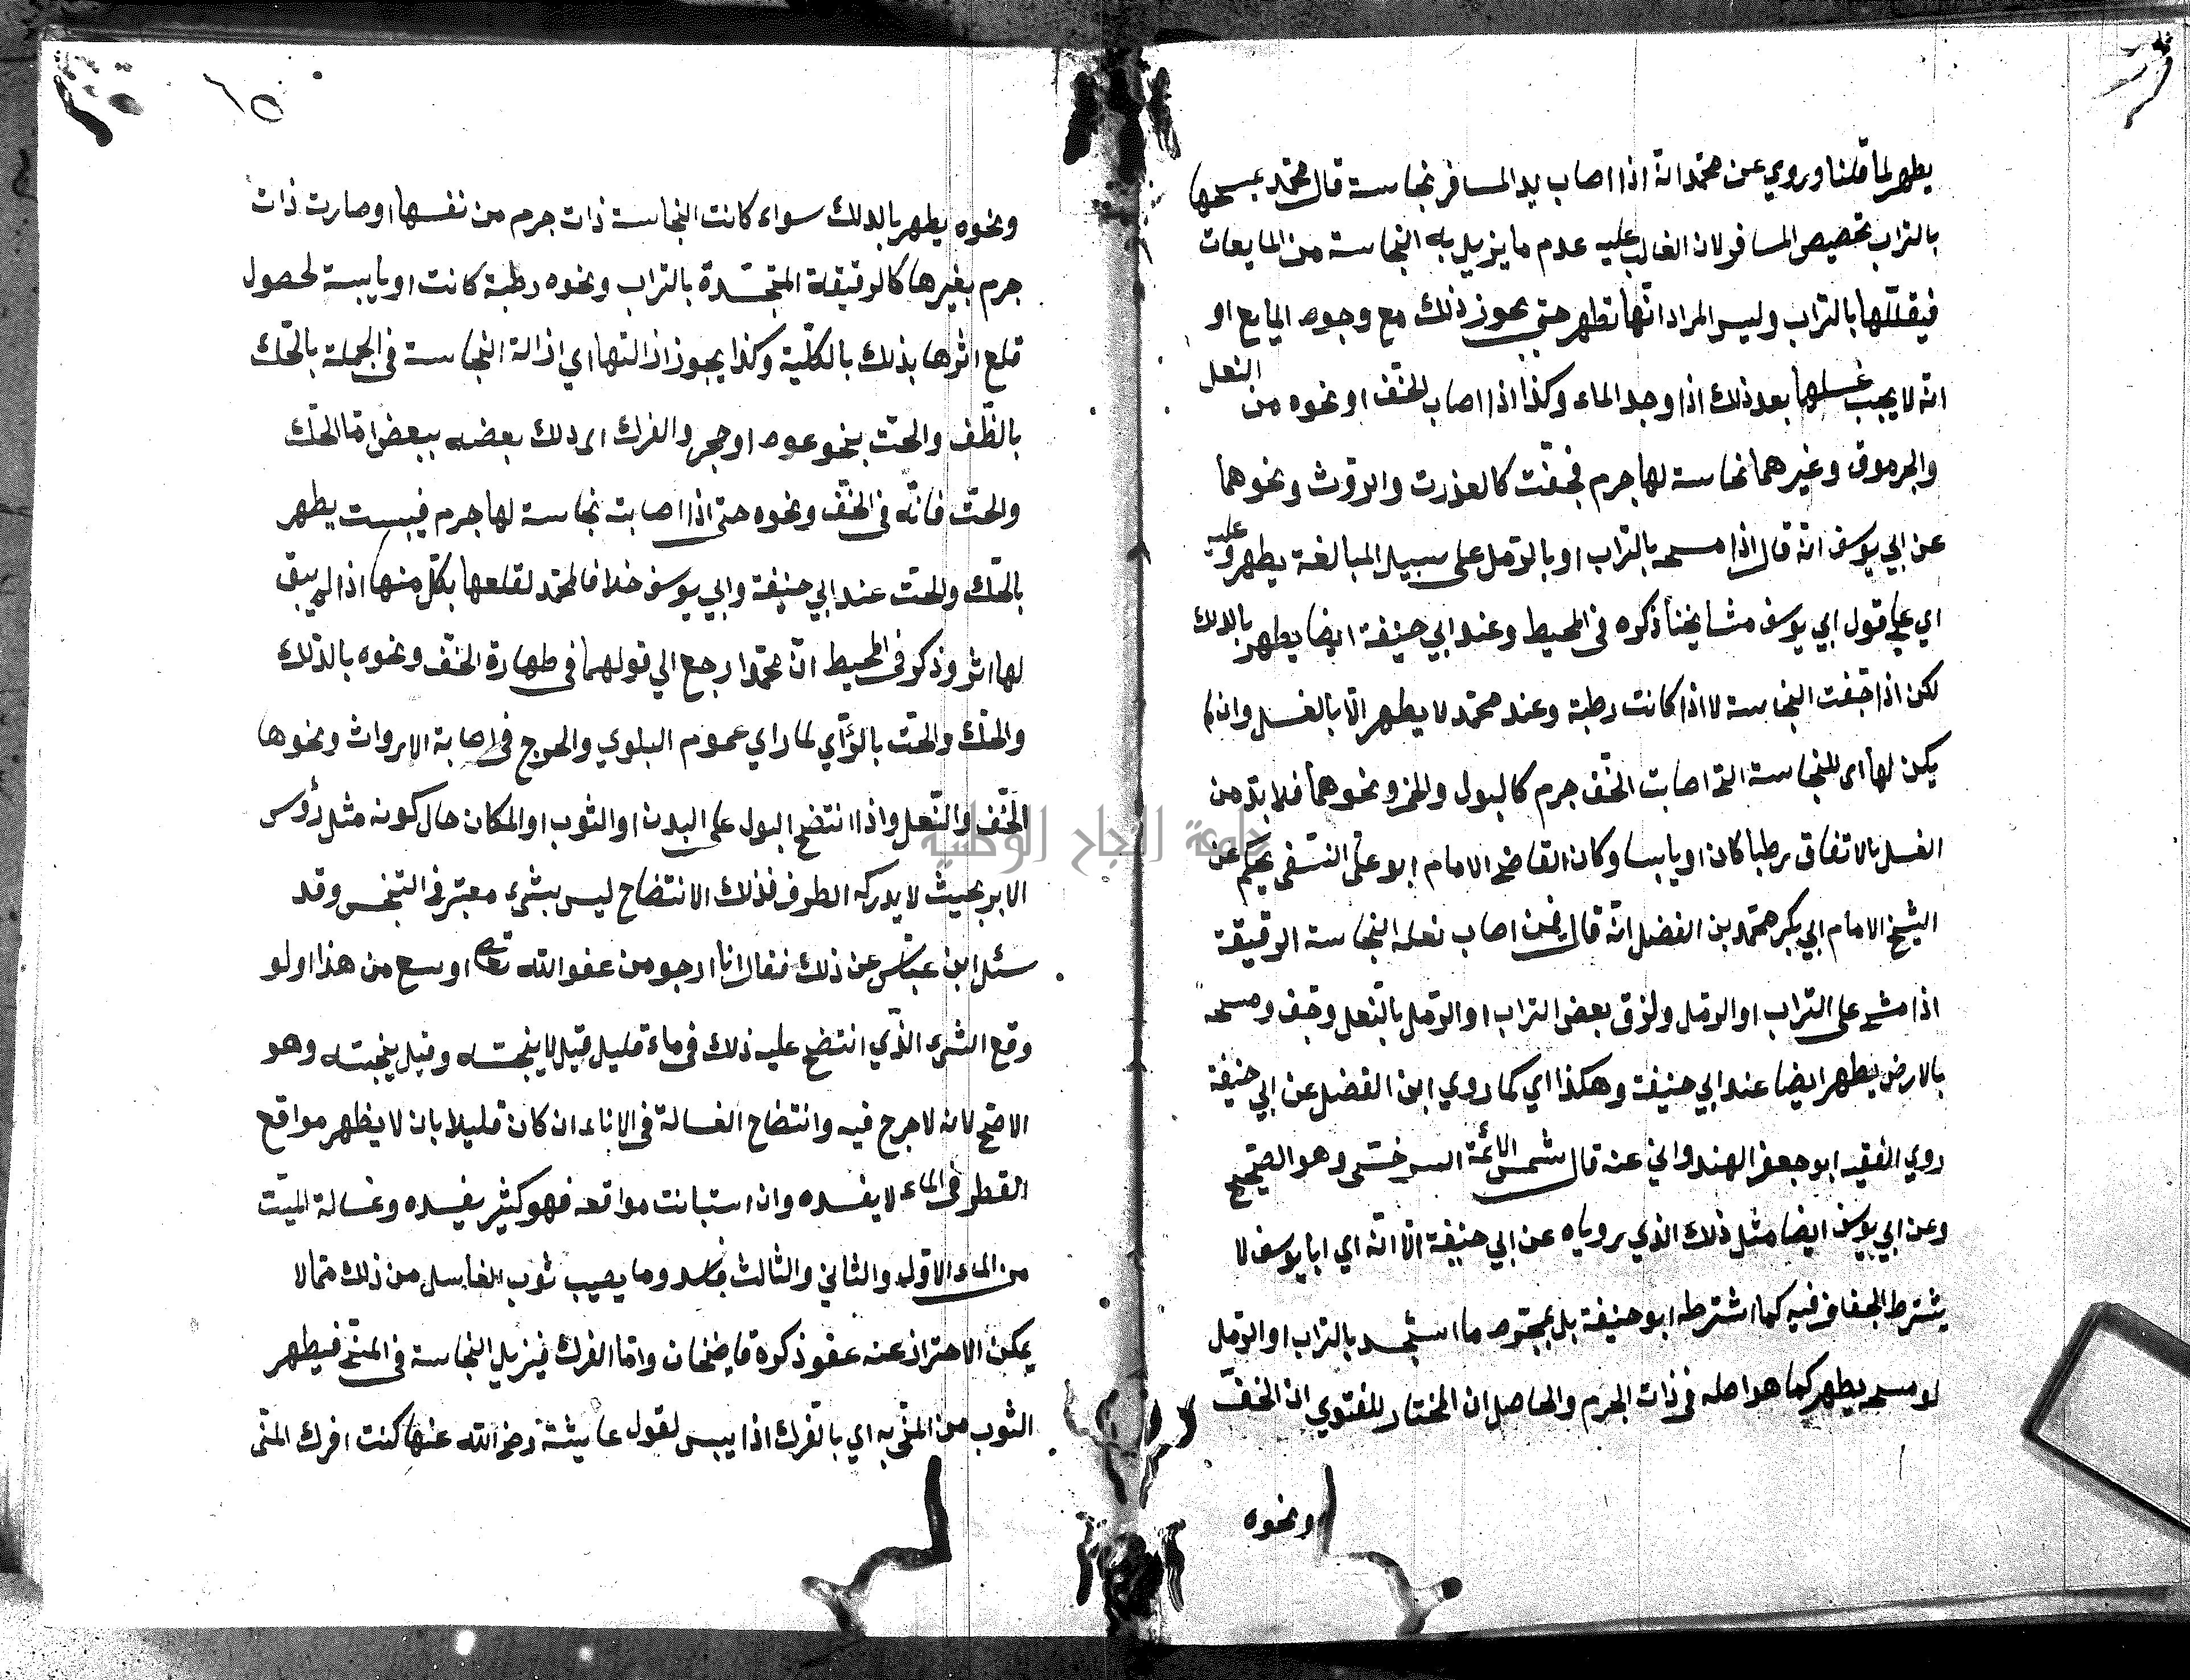 يطهر لما قلنا وروي عن محمد انه اذا اصاب يد المسافر نجاسة قال محمد يمسحها
بالتراب تخصيص المسافر لان الغالب عليه عدم ما يزيل به النجاسة من المايعات
فيقللها بالتراب وليس المراد انها تطهر حتى يجوز ذلك مع وجود المايع او
انه لا يجب غسلها بعد ذلك اذا وجد الماء وكذا اذا اصاب الخف او نحوه من النعل
والجرموق وغيرهما نجاسة لها جرم فجفت كالعذرت والروث ونحوهما
عن ابي يوسف انه قال اذا مسحه بالتراب او بالرمل على سبيل المبالغة يطهر وعليه
اي على قول ابي يوسف مشايخنا ذكره في المحيط وعند ابي حنيفة ايضا يطهر بالدلك
لكن اذا جفت النجاسة لا اذا كانت رطبة وعند محمد لا يطهر الا بالغسل وان لم
يكن لها اى للنجاسة التى اصابت الخف جرم كالبول والخمر ونحوهما فلا بد من
الغسل بالاتفاق رطبا كان او يابسا وكان القاضى الامام ابو على النسفى يحكم عن
الشيخ الامام ابي بكر محمد بن الفضل انه قال فيمن اصاب نعله النجاسة الرقيقة
اذا مشى على التراب او الرمل ولزق بعض التراب او الرمل بالنعل وجف ومسحه
بالارض يطهر ايضا عند ابي حنيفة وهكذا اي كما روي ابن الفضل عن ابي حنيفة
روي الفقيه ابو جعفر الهندواني عنه قال شمس الائمة السرخسى وهو الصحيح
وعن ابي يوسف ايضا مثل ذلك الذي روياه عن ابي حنيفة الا انه اي ابا يوسف لا
يشترط الجفاف فيه كما اشترطه ابو حنيفة بل بمجرد ما استجسد بالتراب او الرمل
لو مسحه يطهر كما هو اصله في ذات الجرم والحاصل ان المختار للفتوي ان الخف
ونحوه
٦٥
ونحوه يطهر بالدلك سواء كانت النجاسة ذات جرم من نفسها او صارت ذات
جرم بغيرها كالرقيقة المتجسدة بالتراب ونحوه رطبة كانت او يابسة لحصول
قلع اثرها بذلك بالكلية وكذا يجوز ازالتها اي ازالة النجاسة في الجملة بالحك
بالظف والحت بنحو عود او حجر والفرك اى دلك بعضه ببعض اما الحك
والحت فانه في الخف ونحوه حتى اذا اصابت نجاسة لها جرم فيبست يطهر
بالحك والحت عند ابي حنيفة وابي يوسف خلافا لمحمد لقلعها بكل منها اذا لم يبق
لها اثر وذكر في المحيط ان محمدا رجع الي قولهما في طهارة الخف ونحوه بالدلك
والحك والحت بالرأي لما راي عموم البلوي والحرج في اصابة الارواث ونحوها
الخف والنعل واذا انتضح البول على البدن او الثوب او المكان حال كونه مثل رؤس
الابر بحيث لا يدركه الطرف فذلك الانتضاح ليس بشىء معتبر في التنجس وقد
سئل ابن عباس عن ذلك فقال انا ارجو من عفو الله تعالى اوسع من هذا ولو
وقع الشىء الذي انتضح عليه ذلك في ماء قليل قيل لا ينجسه وقيل ينجسه وهو
الاصح لانه لا حرج فيه وانتضاح الغسالة في الاناء ان كان قليلا بان لا يظهر مواقع
القطر في الماء لا يفسده وان استبانت مواقعه فهو كثير يفسده وغسالة الميت
من الماء الاول والثاني والثالث فاسد وما يصيب ثوب الغاسل من ذلك مما لا
يمكن الاحتراز عنه عفو ذكره قاضخان واما الفرك فيزيل النجاسة في المنى فيطهر
الثوب من المنى به اي بالفرك اذا يبس لقول عايشة رضى الله عنها كنت افرك المنى
جامعة النجاح الوطنية